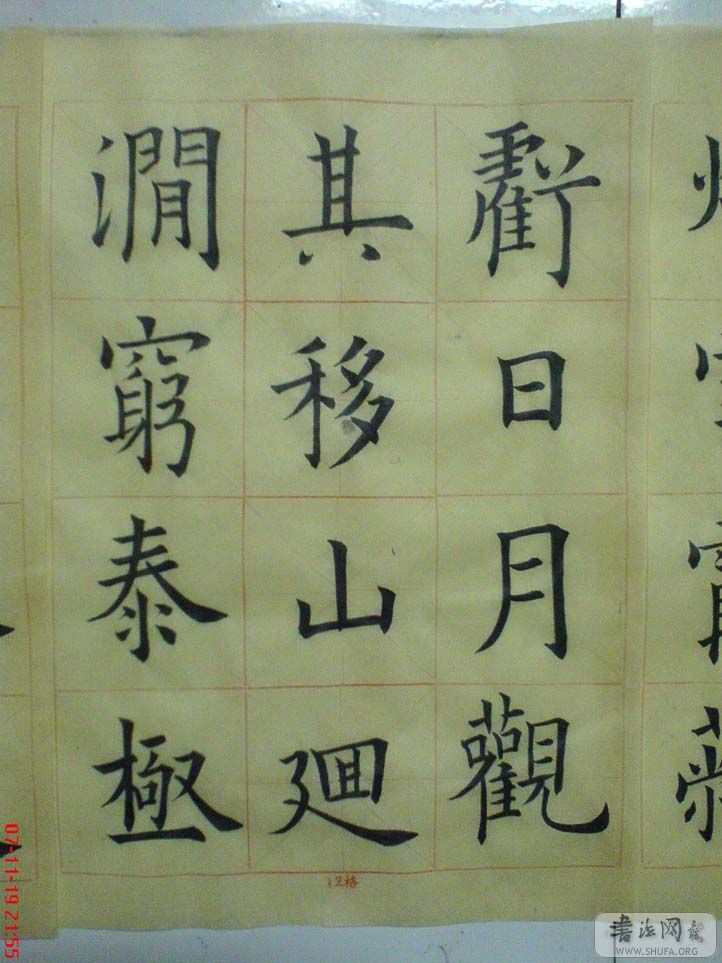 虧日月觀
其移山廻
㵎窮泰極
12格
07-11-19 21:55
书法网
WWW.SHUFA.ORG